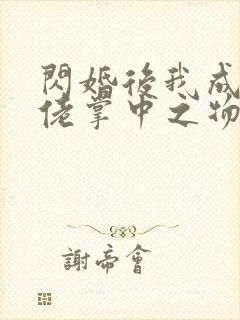 閃婚後我成
佬掌中之物
謝帝會